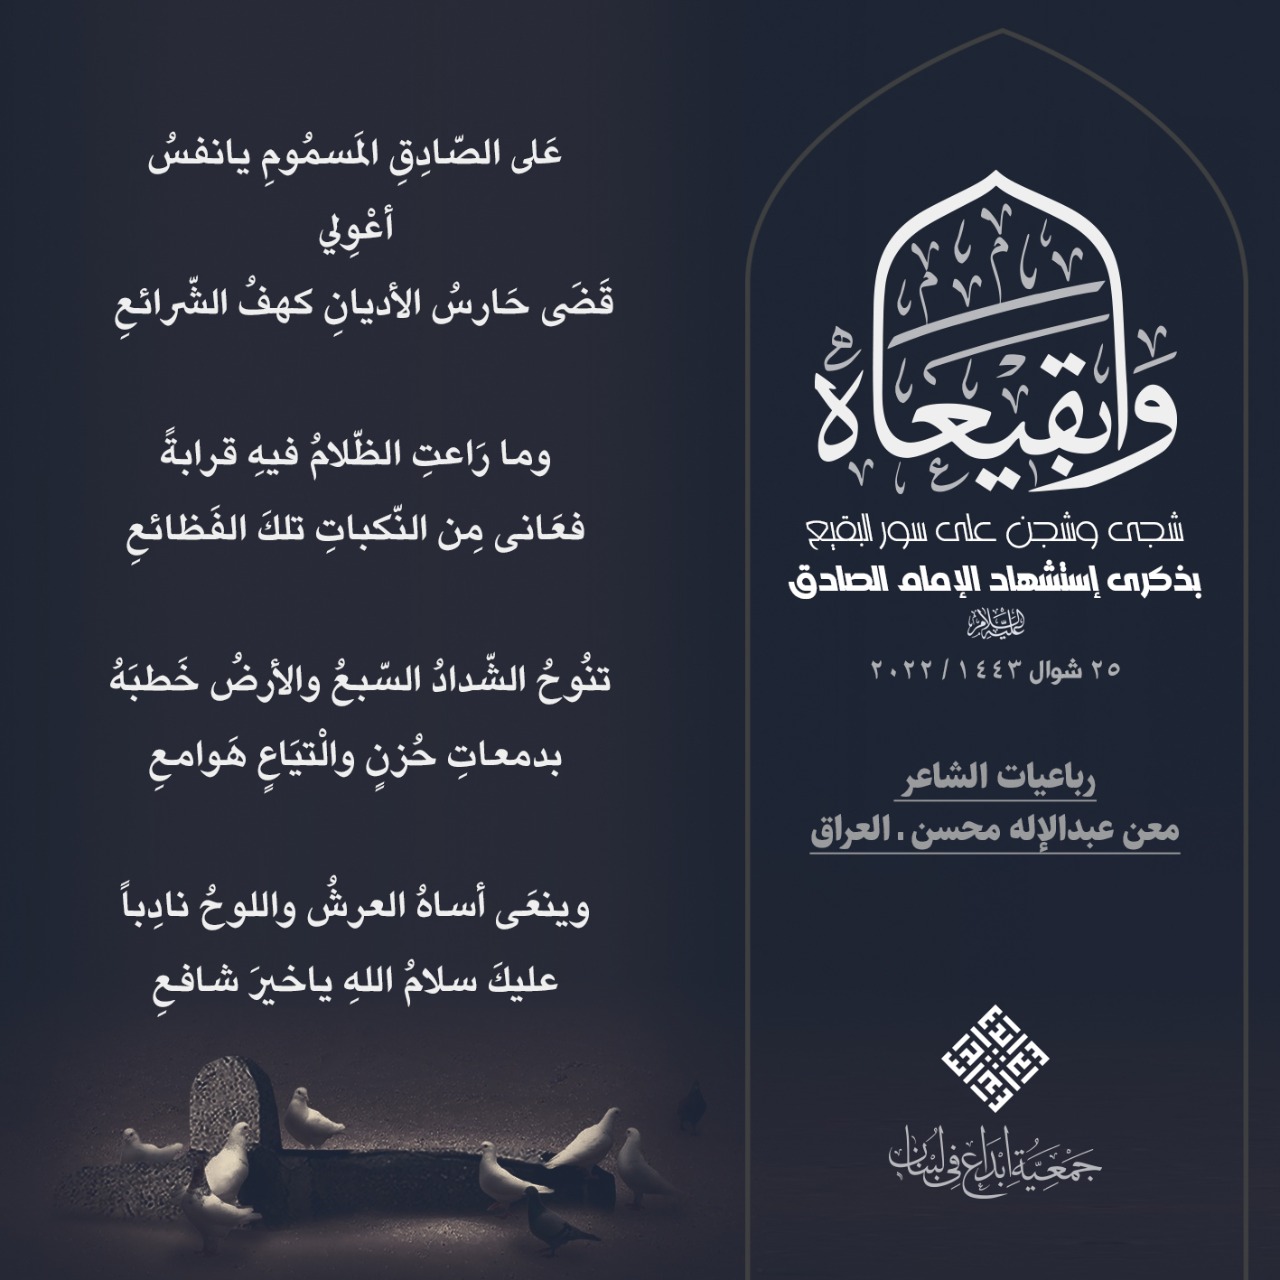 وابقيعاه
شجى وشجن على سور البقيع
بذكرى إستشهاد الإمام الصادق
عليه السلام
٢٥ شوال ١٤٤٣ / ٢٠٢٢
رباعيات الشاعر
معن عبدالإله محسن . العراق
جَمْعِيَّةُ إِبْدَاع فِي لُبْنَان
عَلى الصّادِقِ المَسمُومِ يانفسُ
أعْوِلي
قَضَى حَارسُ الأديانِ كهفُ الشّرائعِ
وما رَاعتِ الظّلامُ فيهِ قرابةً
فعَانى مِن النّكباتِ تلكَ الفَظائعِ
تنُوحُ الشّدادُ السّبعُ والأرضُ خَطبَهُ
بدمعاتِ حُزنٍ والْتيَاعٍ هَوامعِ
وينعَى أساهُ العرشُ واللوحُ نادِباً
عليكَ سلامُ اللهِ ياخيرَ شافعِ